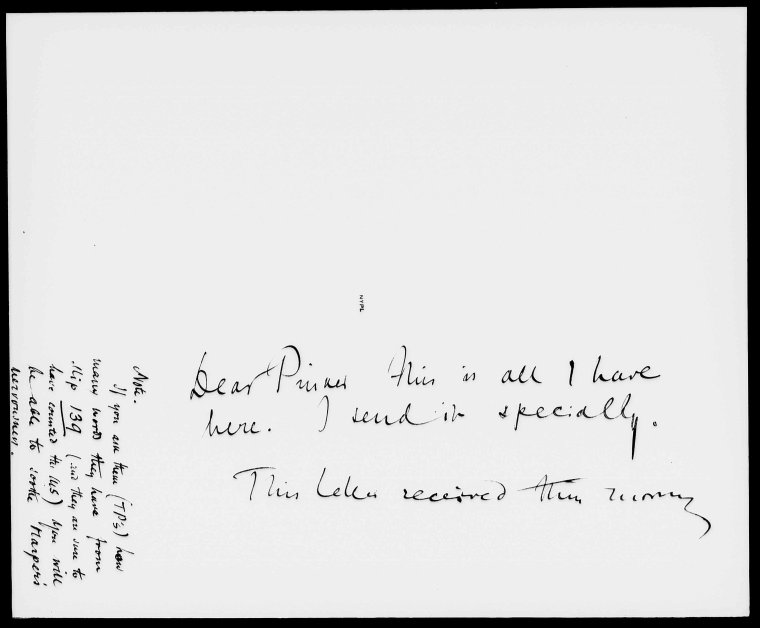 NYPL
Dear Pinker This is all I have
here. I send it specially.
This letter received this morning
Note.
If you ask them (TP's) how
many words they have from
slip 139 (and they are sure to
have counted the MS) you will
be able to soothe Harper's
nervousness.